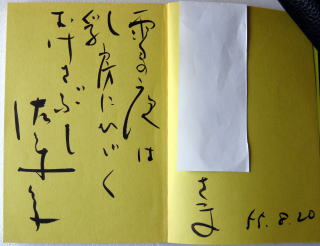 さま
55.8.20
雪の夜は
乳房にひゞく
おけさぶし